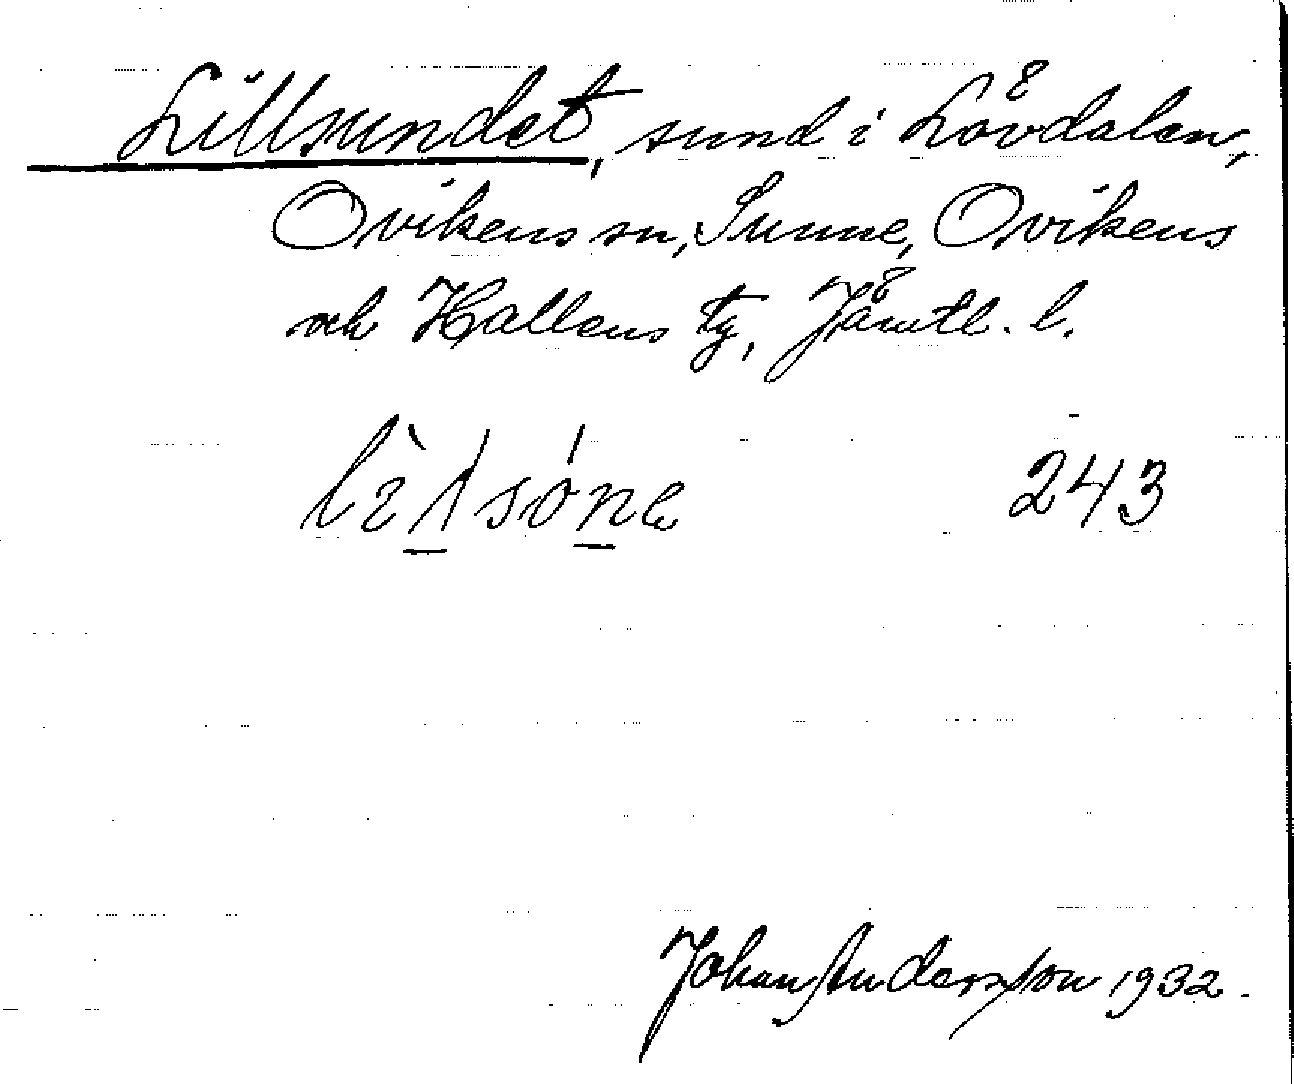 Lillsundet, sund i Lövdalen,
Ovikens sn, Sunne, Ovikens
och Hallens tg, Jämtl. l.
243
Johan Andersson 1932.